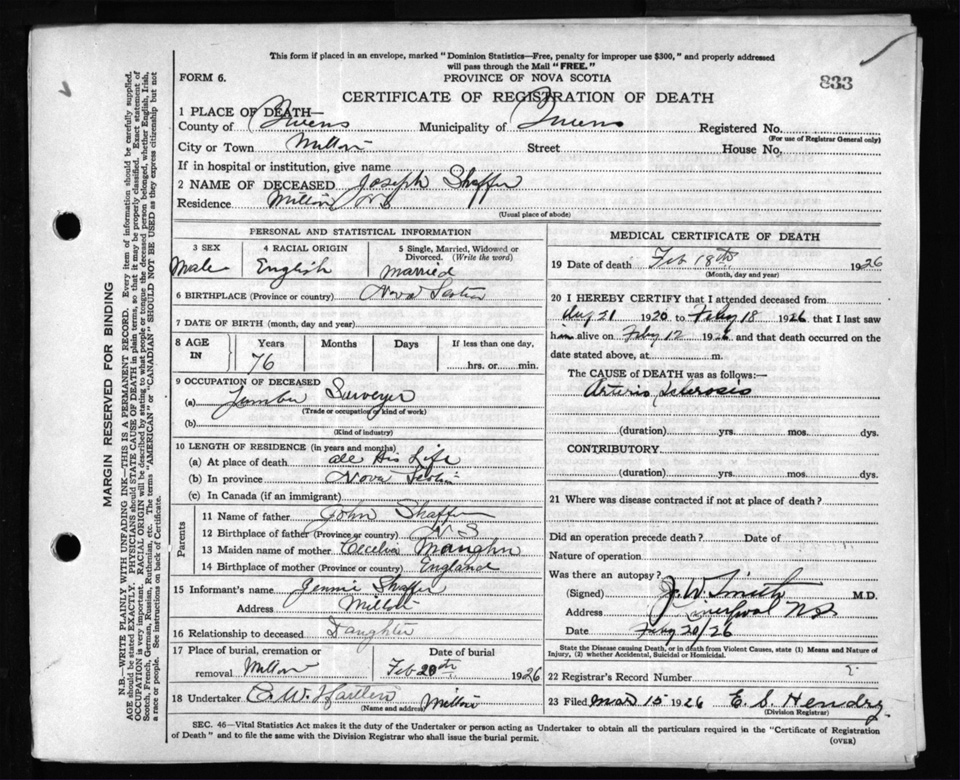 This form if placed in an envelope, marked "Dominion Statistics—Free, penalty for improper use $300," and properly addressed
will pass through the Mail "FREE."
FORM 6.
PROVINCE OF NOVA SCOTIA
833
CERTIFICATE OF REGISTRATION OF DEATH
1 PLACE OF DEATH—
County of Queens Municipality of Queens Registered No.
(For use of Registrar General only)
City or Town Milton Street House No.
If in hospital or institution, give name
2 NAME OF DECEASED Joseph Shaffer
Residence Milton NS
(Usual place of abode)
PERSONAL AND STATISTICAL INFORMATION
3 SEX 4 RACIAL ORIGIN 5 Single, Married, Widowed or
Divorced. (Write the word)
Male English married
6 BIRTHPLACE (Province or country) Nova Scotia
7 DATE OF BIRTH (month, day and year)
8 AGE IN Years Months Days If less than one day,
76 hrs. or min.
9 OCCUPATION OF DECEASED
(a) Lumber Surveyer
(Trade or occupation or kind of work)
(b)
(Kind of industry)
10 LENGTH OF RESIDENCE (in years and months)
(a) At place of death all his Life
(b) In province Nova Scotia
(c) In Canada (if an immigrant)
Parents
11 Name of father John Shaffer
12 Birthplace of father (Province or country) N S
13 Maiden name of mother Cecelia
14 Birthplace of mother (Province or country) England
15 Informant's name Jennie Shaffer
Address Milton
16 Relationship to deceased Daughter
17 Place of burial, cremation or Date of burial
removal Milton Feb 20th 1926
18 Undertaker C. W.
(Name and address) Milton
MEDICAL CERTIFICATE OF DEATH
19 Date of death Feb 18th 1926
(Month, day and year)
20 I HEREBY CERTIFY that I attended deceased from
Aug 21 1920 to Feby 18 1926 that I last saw
him alive on Feby 12 1926 and that death occurred on the
date stated above, at m.
The CAUSE of DEATH was as follows:—
Arterio Sclerosis
(duration) yrs. mos. dys.
CONTRIBUTORY
(duration) yrs. mos. dys.
21 Where was disease contracted if not at place of death?
Did an operation precede death? Date of
Nature of operation
Was there an autopsy?
(Signed) J. W. Smith M.D.
Address Liverpool N.S.
Date Feby 20/26
State the Disease causing Death, or in death from Violent Causes, state (1) Means and Nature of
Injury, (2) whether Accidental, Suicidal or Homicidal.
22 Registrar's Record Number
23 Filed Mar 15 1926 E. S. Hendry
(Division Registrar)
SEC. 46—Vital Statistics Act makes it the duty of the Undertaker or person acting as Undertaker to obtain all the particulars required in the "Certificate of Registration
of Death" and to file the same with the Division Registrar who shall issue the burial permit.
(OVER)
MARGIN RESERVED FOR BINDING
N.B.—WRITE PLAINLY WITH UNFADING INK—THIS IS A PERMANENT RECORD. Every item of information should be carefully supplied.
AGE should be stated EXACTLY. PHYSICIANS should STATE CAUSE OF DEATH in plain terms, so that it may be properly classified. Exact statement of
OCCUPATION is very important. RACIAL ORIGIN will be described by stating to what people or tongue the deceased person belonged, whether English, Irish,
Scotch, French, German, Russian, Ruthenian, etc. The terms "AMERICAN" or "CANADIAN" SHOULD NOT BE USED as they express citizenship but not
a race or people. See instructions on back of Certificate.